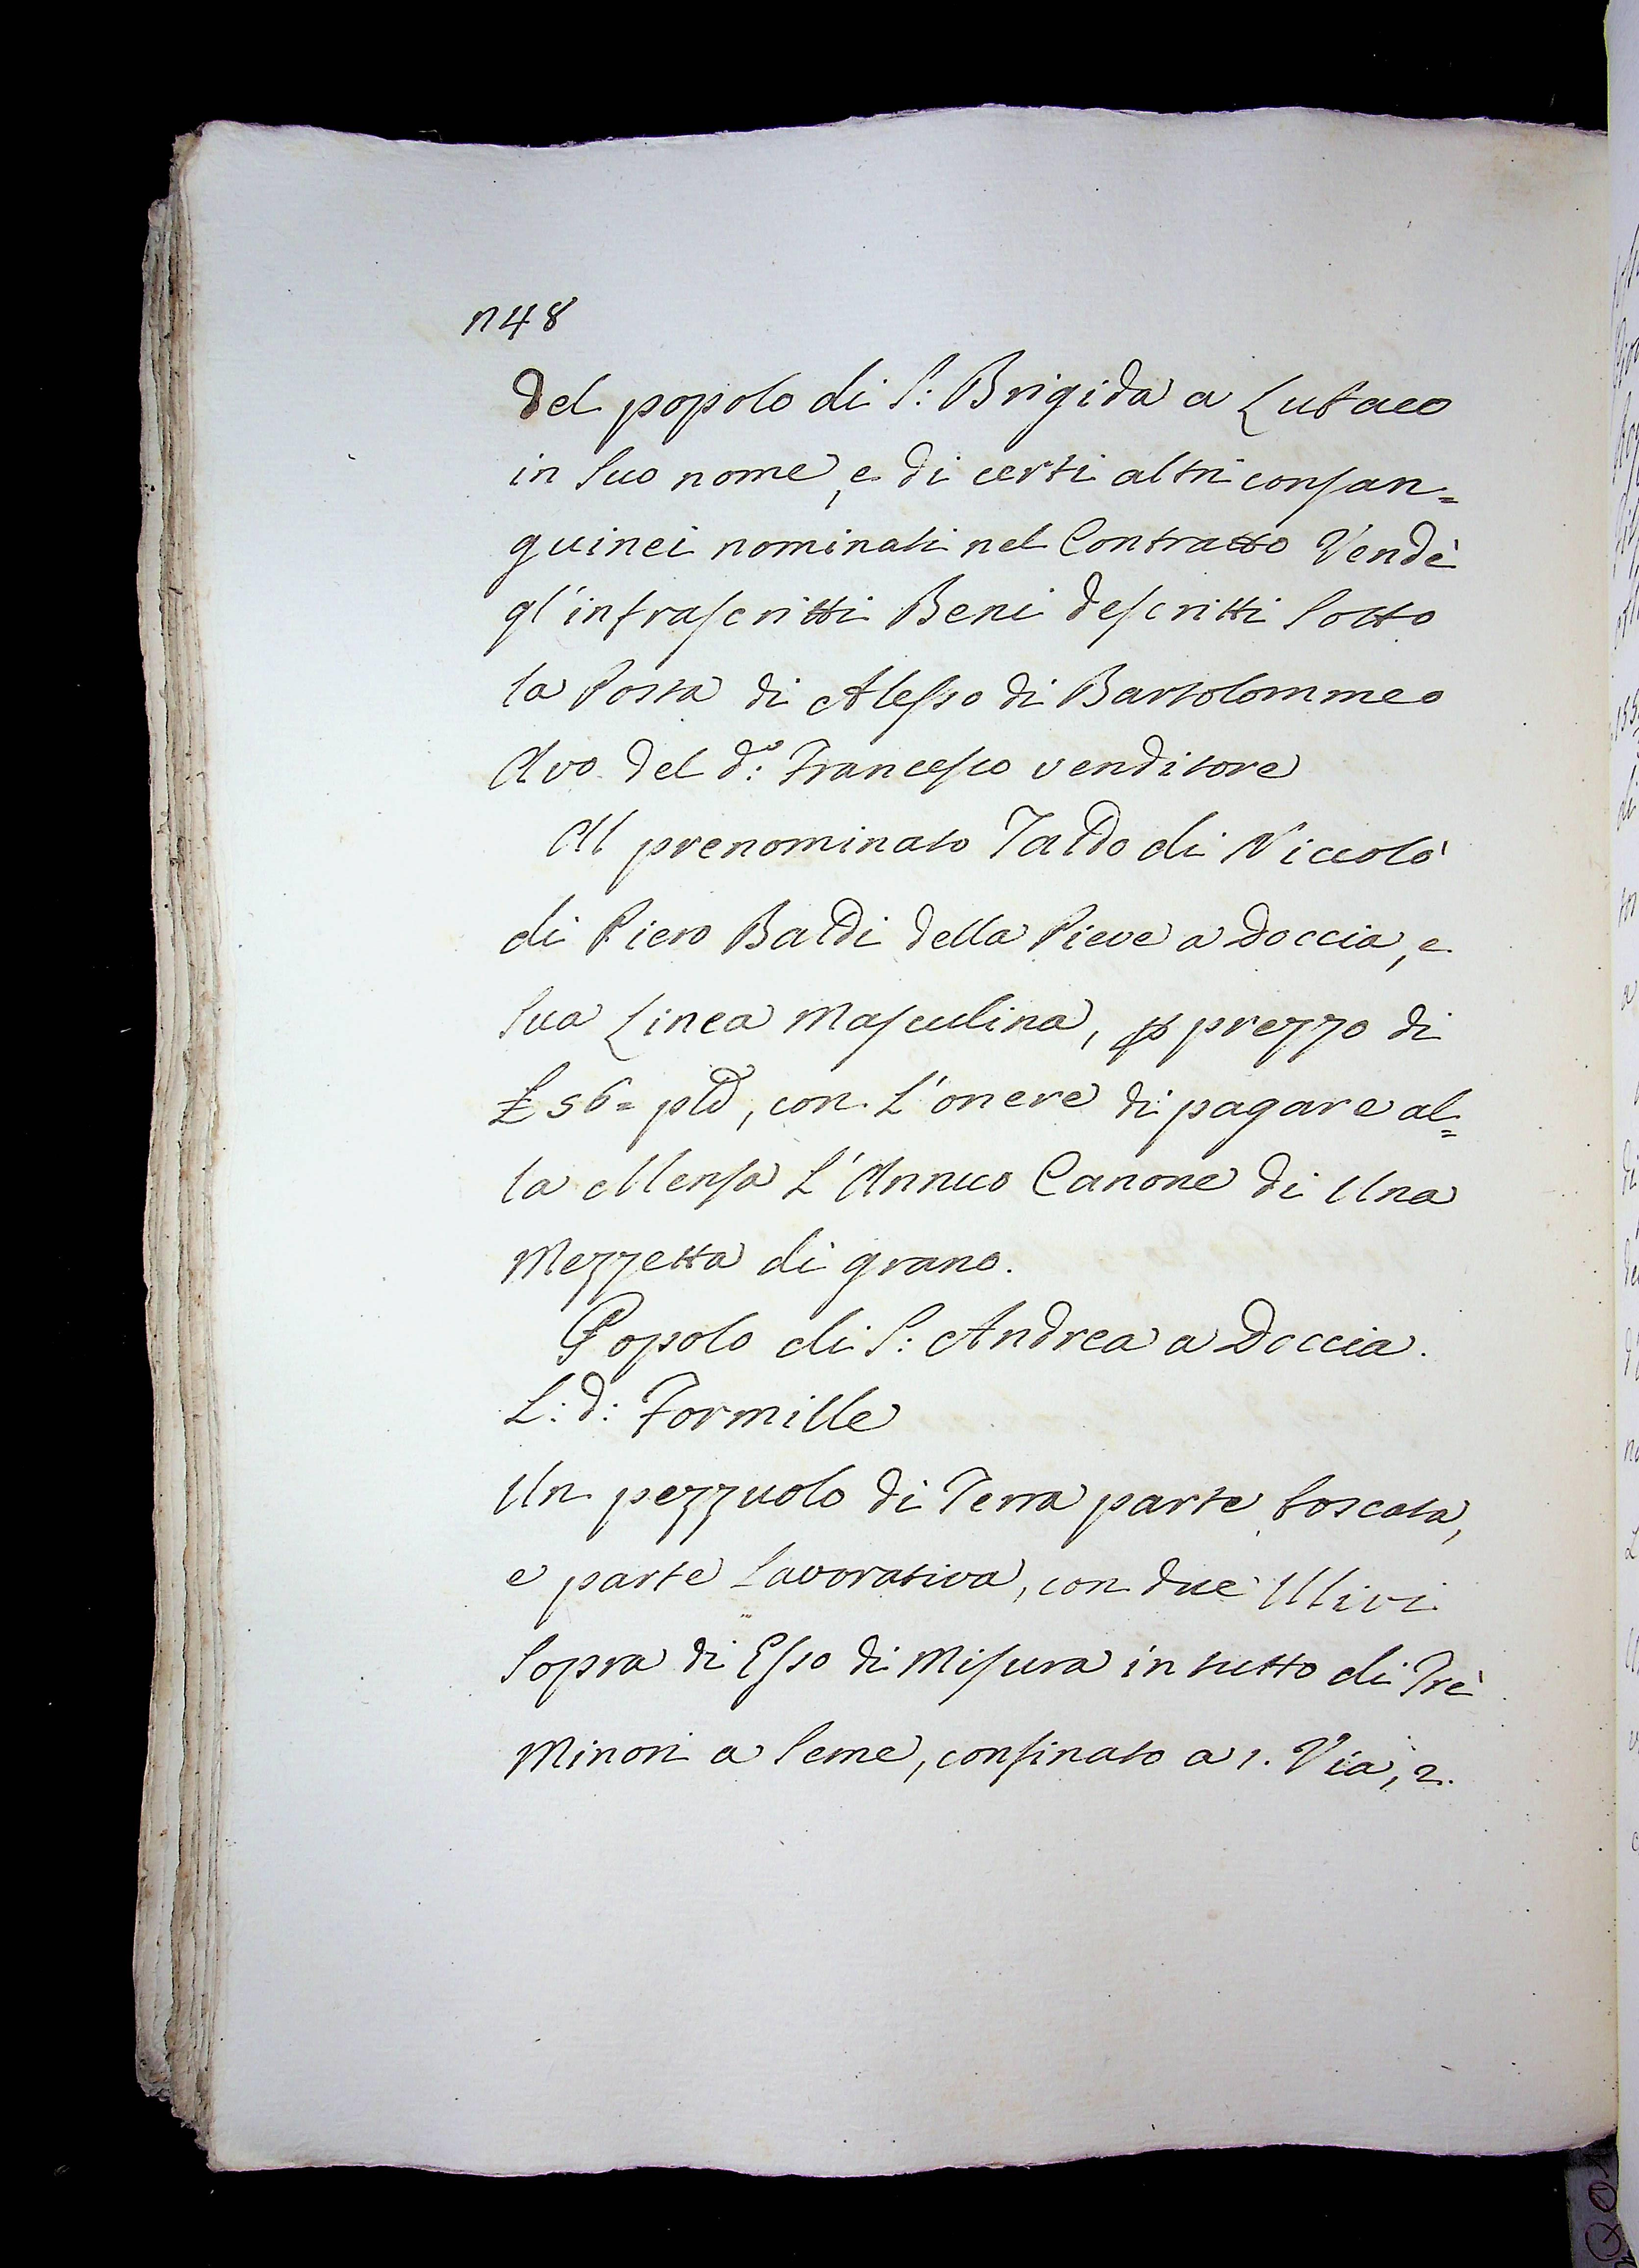 n48
Del popolo di S: Brigida a Lubaco
in Suo nome, e di certi altri consan=
guinei nominati nel Contratto Vendè
gl'infrascritti Beni descritti Sotto
la Posta di Alesso di Bartolommeo
Avo del d:º Francesco venditore
Al prenominato Taddo di Niccolò
di Piero Baldi della Pieve a Doccia, e
Sua Linea Masculina, p prezzo di
£ 56= pld, con L'onere di pagare al=
la Mensa L'Annuo Canone di Una
Mezzetta di grano.
Popolo di S: Andrea a Doccia.
L: d: Formille
Un pezzuolo di Terra parte boscata,
e parte Lavorativa, con due Ulivi
Sopra di Esso di Misura in tutto di Trè
Minori a Seme, confinato a 1. Via, 2.